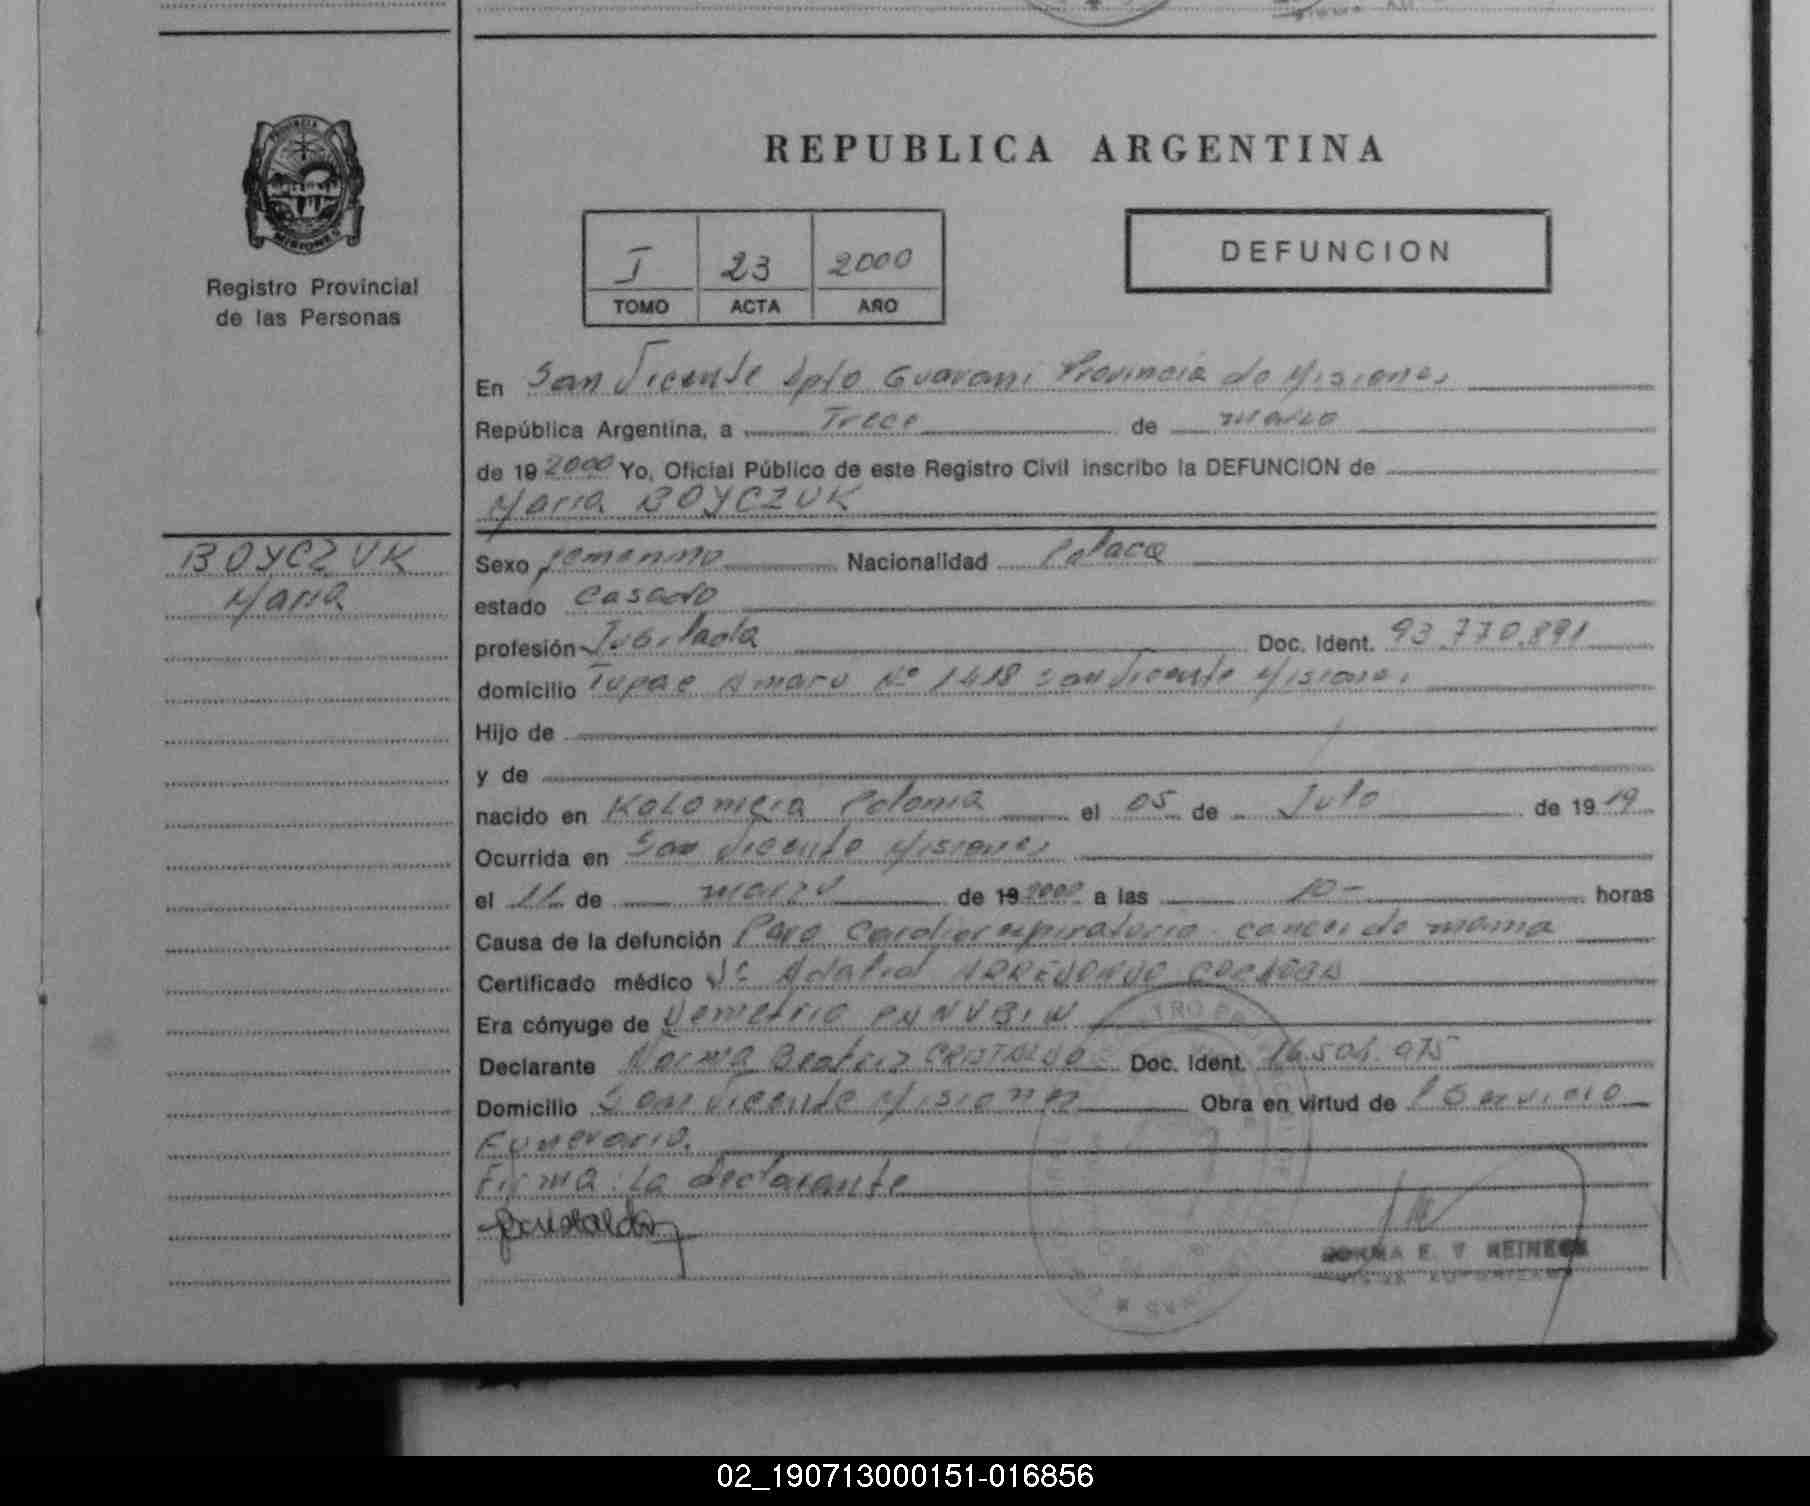 PROVINCIA
MISIONES
Registro Provincial
de las Personas
REPUBLICA ARGENTINA
I 23 2000
TOMO ACTA AÑO
DEFUNCION
En San Vicente Dpto Guarani Provincia de Misiones
República Argentina, a Trece de marzo
de 19 2000 Yo, Oficial Público de este Registro Civil inscribo la DEFUNCION de
Maria BOYCZUK
BOYCZUK
Maria
Sexo femenino Nacionalidad Polaca
estado Casado
profesión Jubilada Doc. Ident. 93.770.891
domicilio Tupac Amaru Nº 1418 San Vicente Misiones
Hijo de
y de
nacido en Kolomeia Polonia el 05 de Julio de 19 19
Ocurrida en San Vicente Misiones
el 11 de marzo de 19 2000 a las 10- horas
Causa de la defunción Paro Cardiorespiratorio cancer de mama
Certificado médico Dr ARREDONDO CORDOBA
Era cónyuge de Demetrio
Declarante Norma Beatriz CRISTALDO Doc. Ident. 16.504.075
Domicilio San Vicente Misiones Obra en virtud de / Servicio
Funerario.
Firma: La declarante
E. V REINECK
02_190713000151-016856